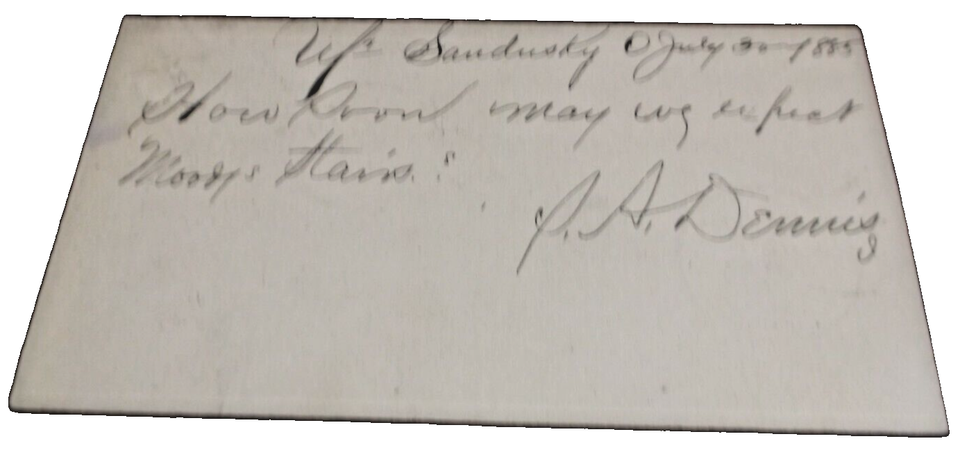 Up Sandusky O July 30 1885
How Soon may we expect
Moodys Stairs.?
J. A. Dennis